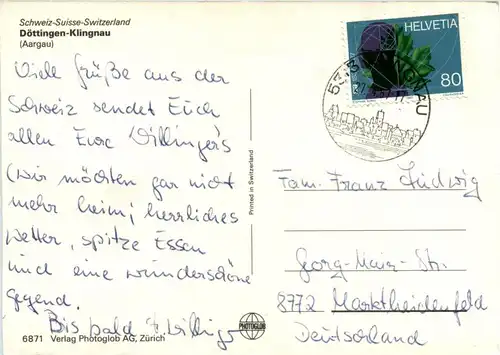 Schweiz-Suisse-Switzerland
Döttingen-Klingnau
(Aargau)
Viele Grüße aus der
Schweiz sendet Euch
allen Eure Dillinger's
(wir möchten gar nicht
mehr heim; herrliches
Wetter, spitze Essen
und eine wunderschöne
gegend.
Bis bald
6871 Verlag Photoglob AG, Zürich
PHOTOGLOB
Printed in Switzerland
HELVETIA
80
NAU
Fam. Franz Ludwig
Georg-Mair-Str.
8772 Marktheidenfeld
Deutschland